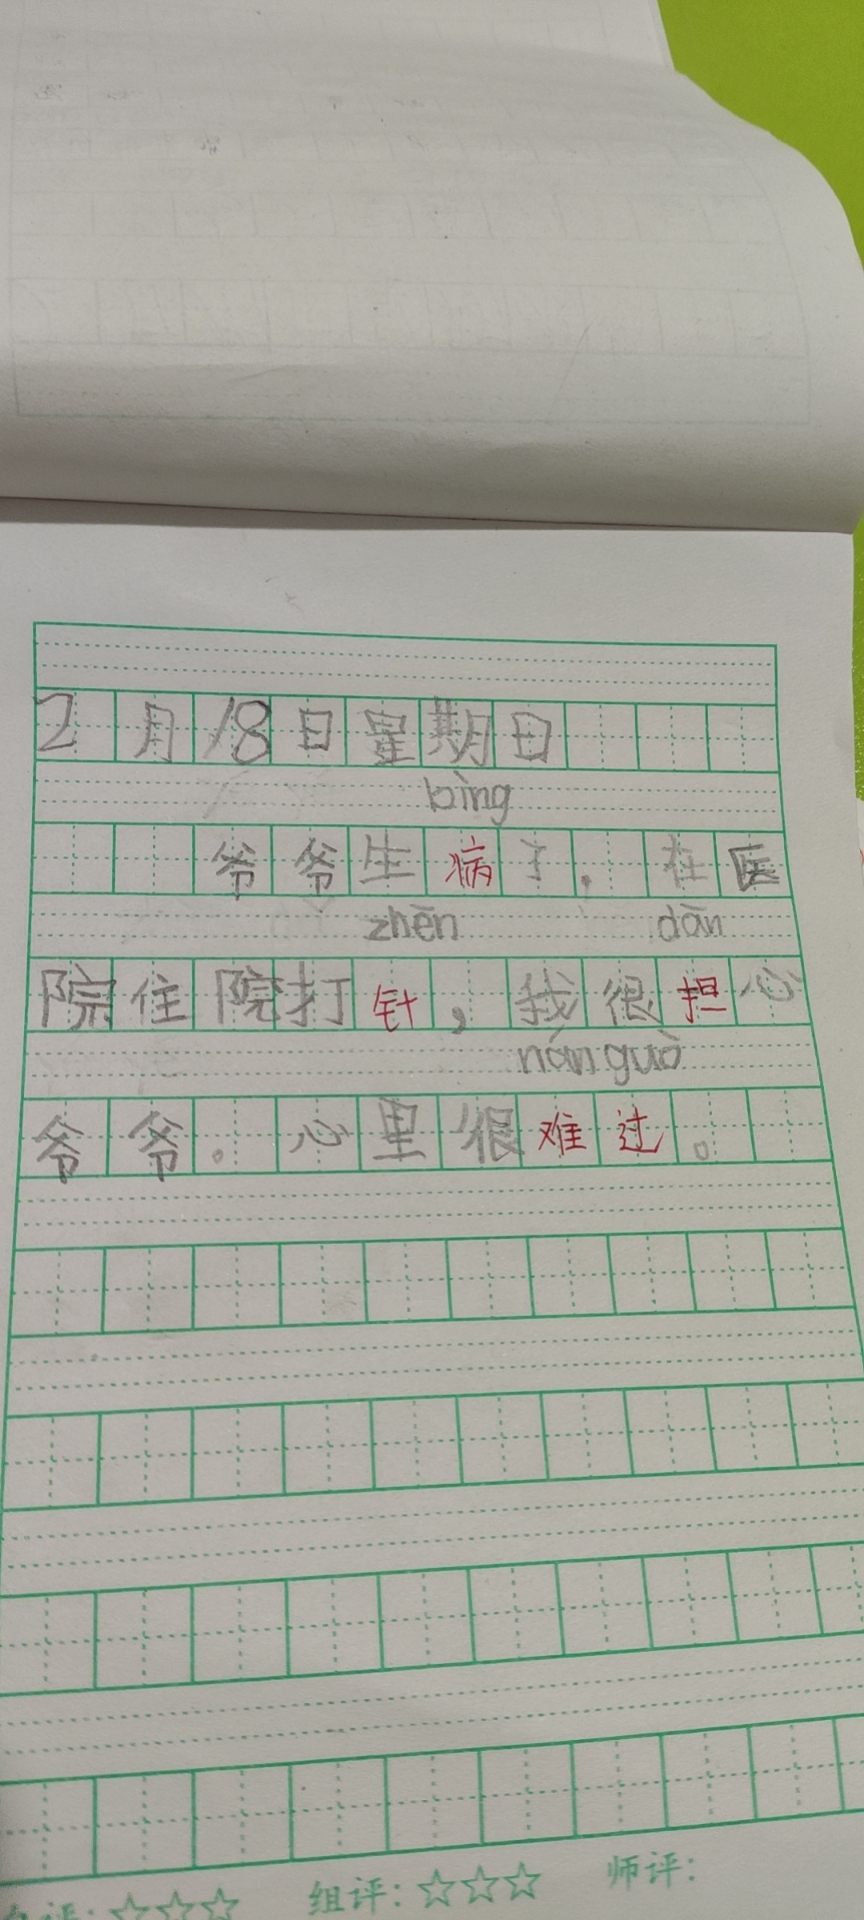 2月18日星期日
bìng
爷爷生病了.在医
zhēn dān
院住院打针,我很担心
nán guò
爷爷。心里很难过。
组评:☆☆☆ 师评: